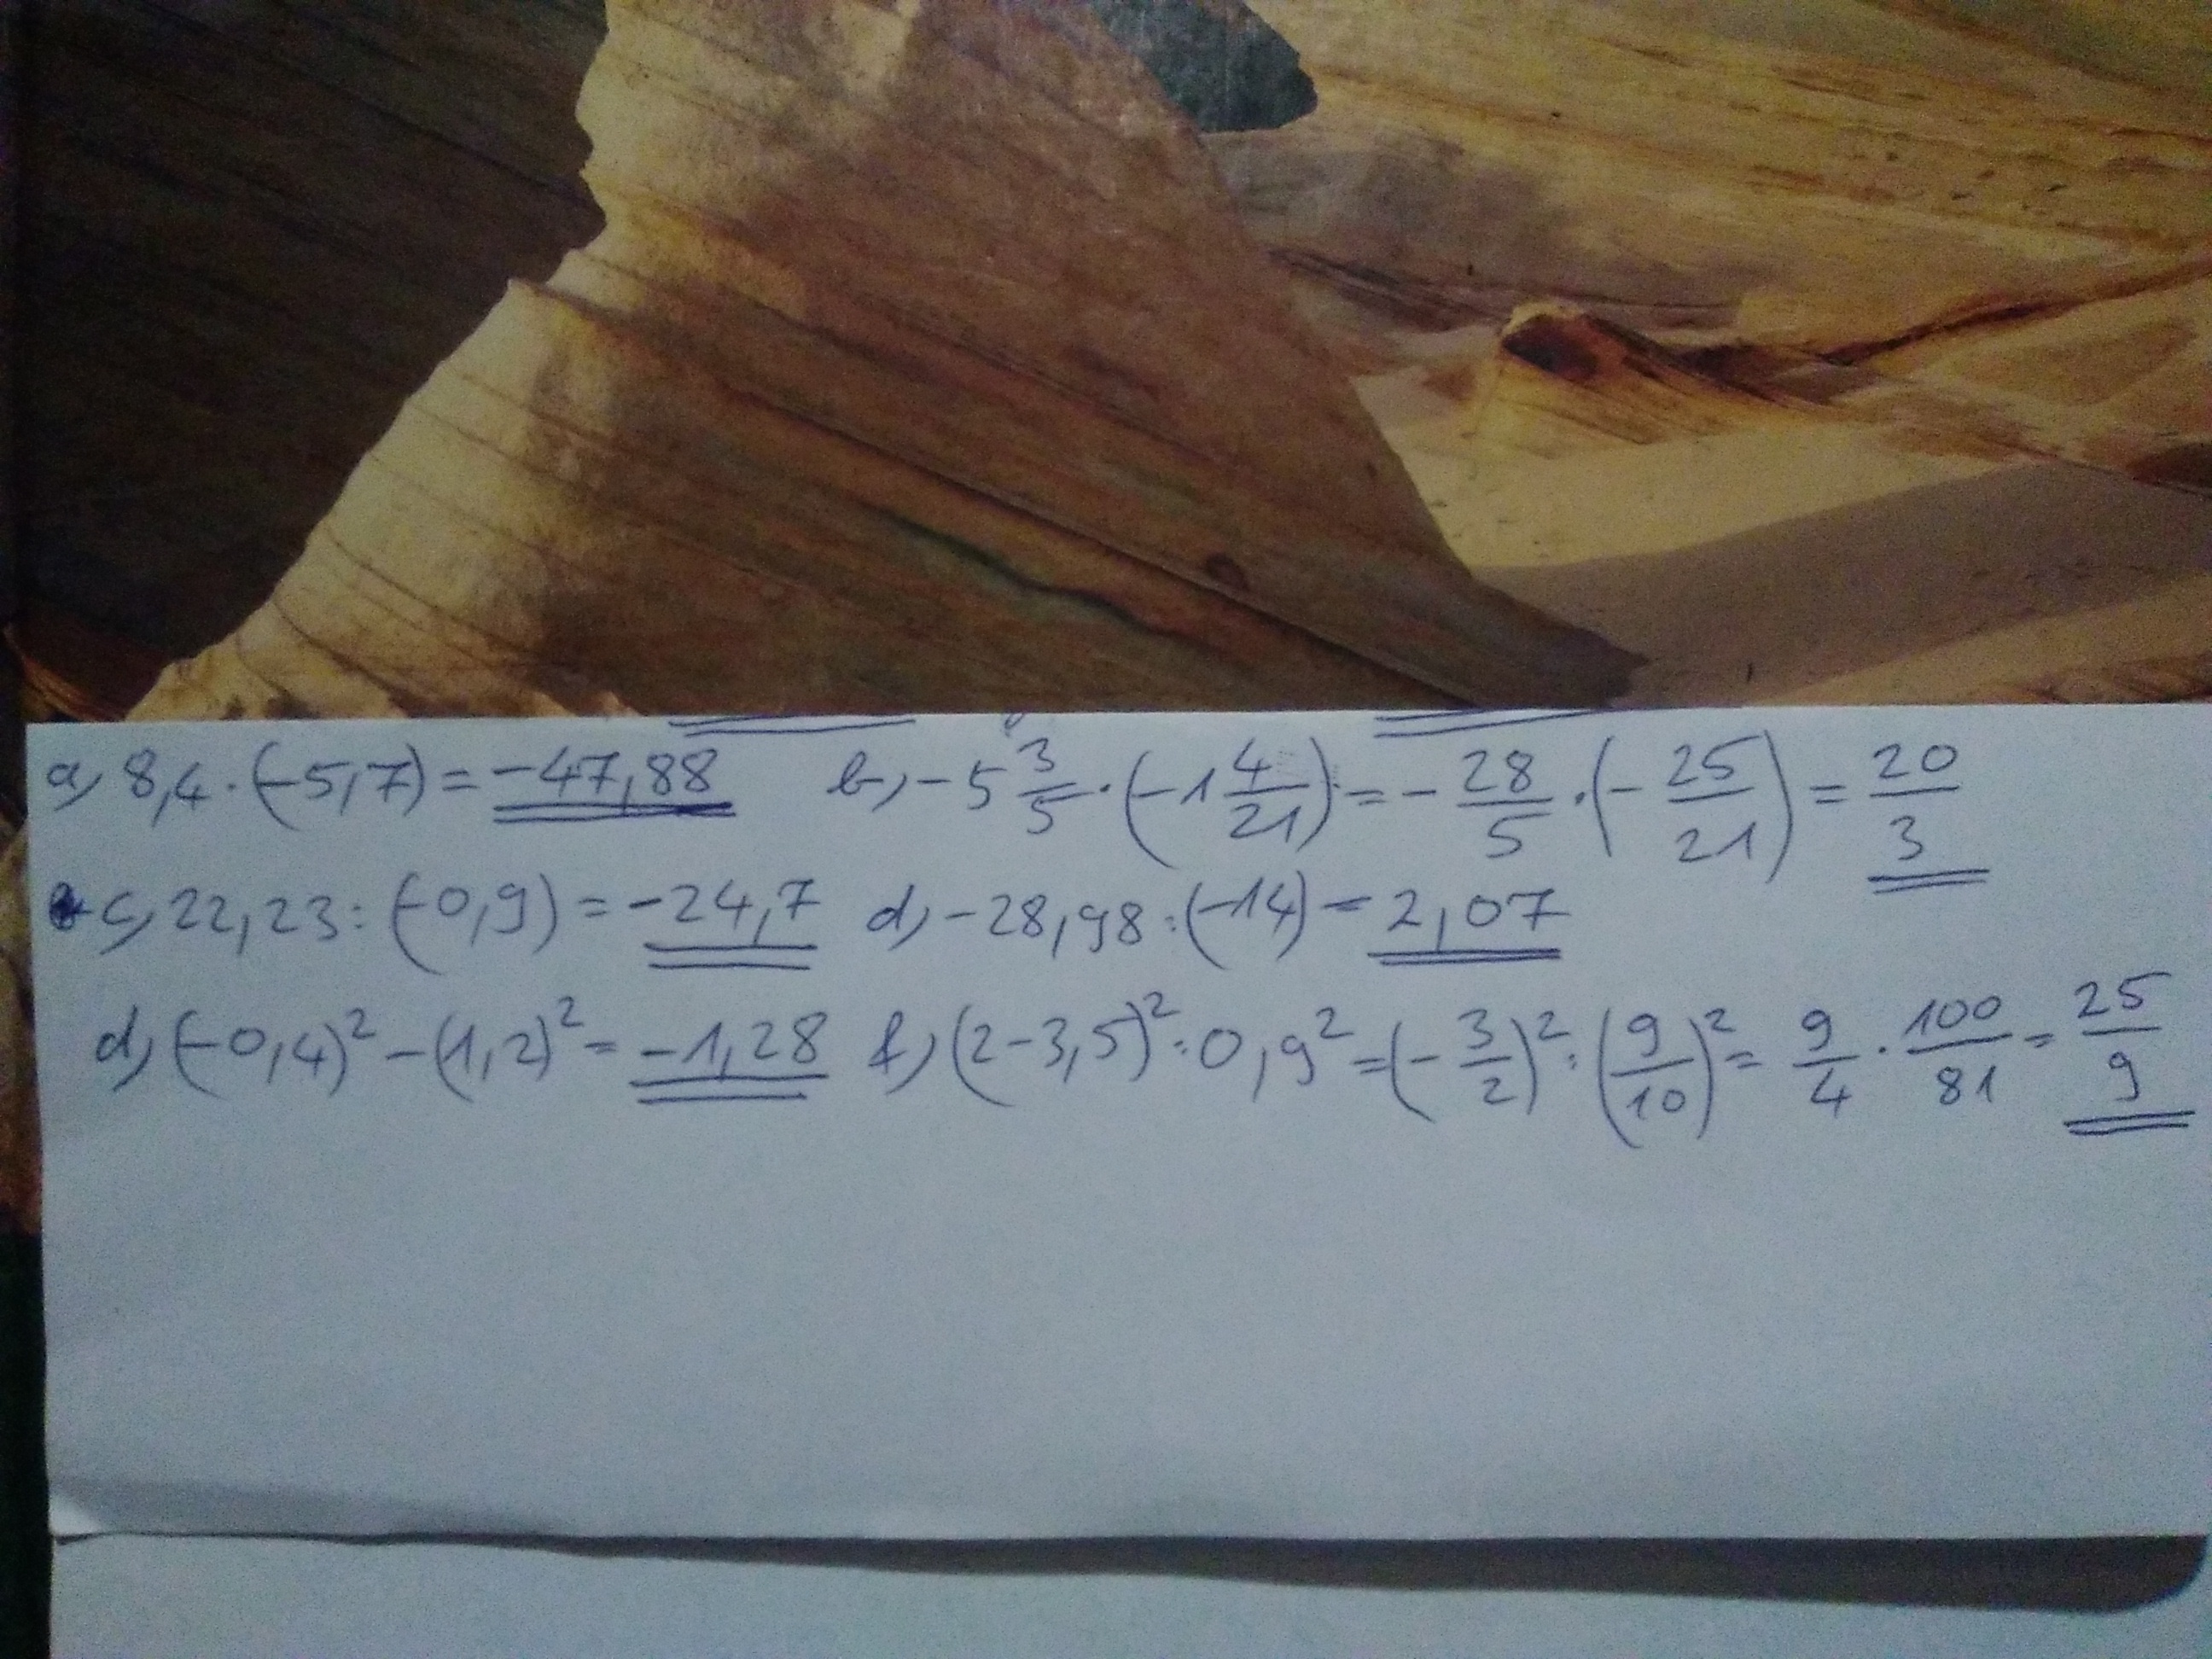 a) 8,4 · (-5,7) = -47,88 b) -5 3/5 · (-1 4/21) = -28/5 · (-25/21) = 20/3
c) 22,23 : (-0,9) = -24,7 d) -28,98 : (-14) = 2,07
d) (-0,4)² - (1,2)² = -1,28 f) (2-3,5)² : 0,9² = (-3/2)² : (9/10)² = 9/4 · 100/81 = 25/9